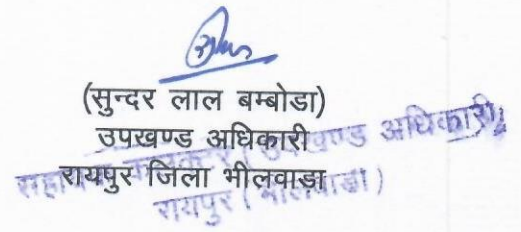 (सुन्दर लाल बम्बोडा)
उपखण्ड अधिकारी
रायपुर जिला भीलवाडा
उपखण्ड अधिकारी
रायपुर (भीलवाडा)